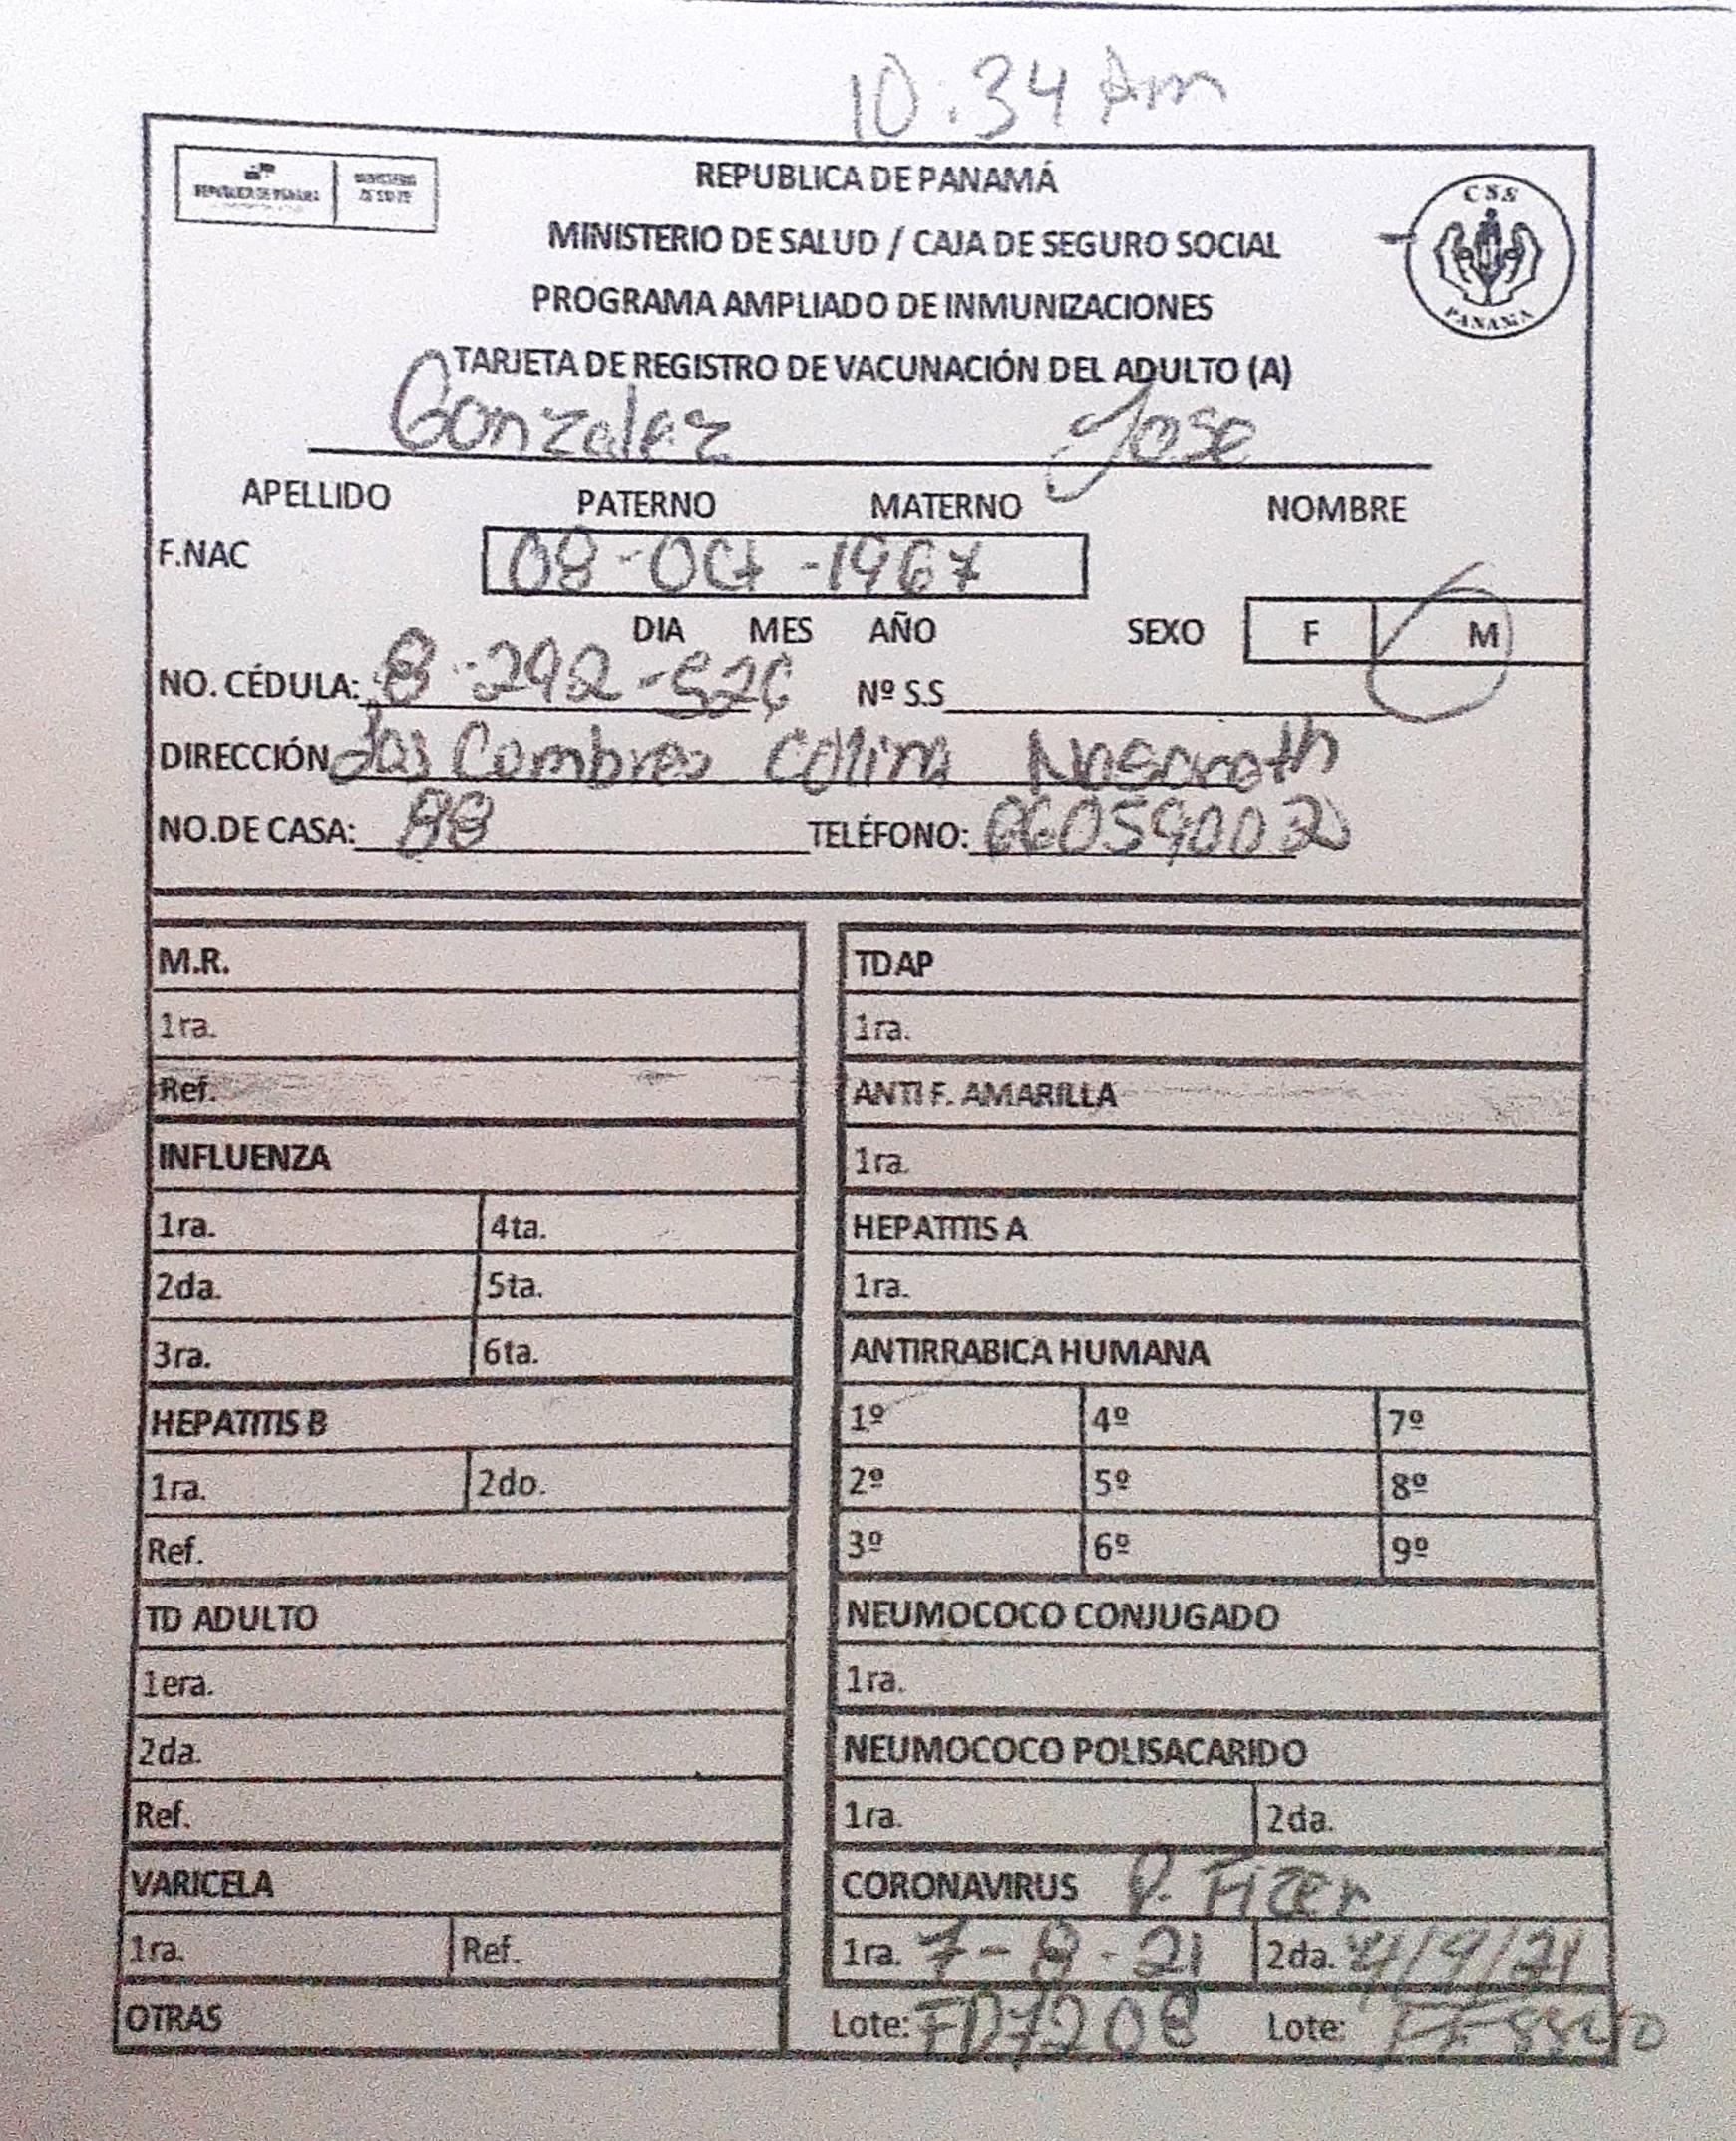 10:34 Am
REPUBLICA DE PANAMÁ
MINISTERIO DE SALUD / CAJA DE SEGURO SOCIAL
PROGRAMA AMPLIADO DE INMUNIZACIONES
CSS
PANAMA
TARJETA DE REGISTRO DE VACUNACIÓN DEL ADULTO (A)
Gonzalez Jose
APELLIDO PATERNO MATERNO NOMBRE
F.NAC 08-Oct-1967
DIA MES AÑO SEXO F M
NO. CÉDULA: 8-292-526 Nº S.S
DIRECCIÓN Las Cumbres Colina Nasareth
NO.DE CASA: TELÉFONO:
M.R.
1ra.
Ref.
INFLUENZA
1ra. 4ta.
2da. 5ta.
3ra. 6ta.
HEPATITIS B
1ra. 2do.
Ref.
TD ADULTO
1era.
2da.
Ref.
VARICELA
1ra. Ref.
OTRAS
TDAP
1ra.
ANTI F. AMARILLA
1ra.
HEPATITIS A
1ra.
ANTIRRABICA HUMANA
1º 4º 7º
2º 5º 8º
3º 6º 9º
NEUMOCOCO CONJUGADO
1ra.
NEUMOCOCO POLISACARIDO
1ra. 2da.
CORONAVIRUS P. Fizer
1ra. 7-8-21 2da. 4/9/21
Lote: FD7208 Lote: